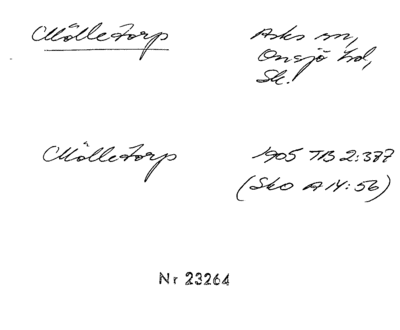 Mölletorp
Asks sn,
Onsjö hd,
Sk.
Mölletorp
1905 TB 2:377
(Sko A 14:56)
Nr 23264